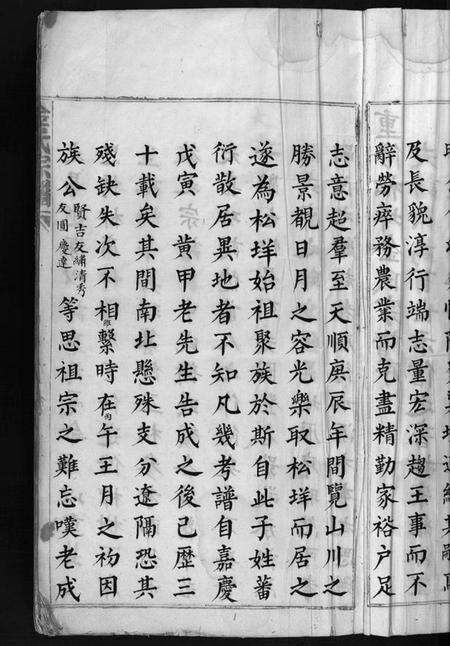 及長貌淳行端志量宏深趨王事而不
辭勞瘁務農業而克盡精勤家裕户足
志意超羣至天順庚辰年間覽山川之
勝景觀日月之容光樂取松垟而居之
遂為松垟始祖聚族於斯自此子姓蕃
衍散居異地者不知凡幾考譜自嘉慶
戊寅 黄甲老先生告成之後已歷三
十載矣其間南北懸殊支分遼隔恐其
殘缺失次不相維繫時在丙午王月之初因
族公賢吉友繡清秀友圃慶達等思祖宗之難忘嘆老成